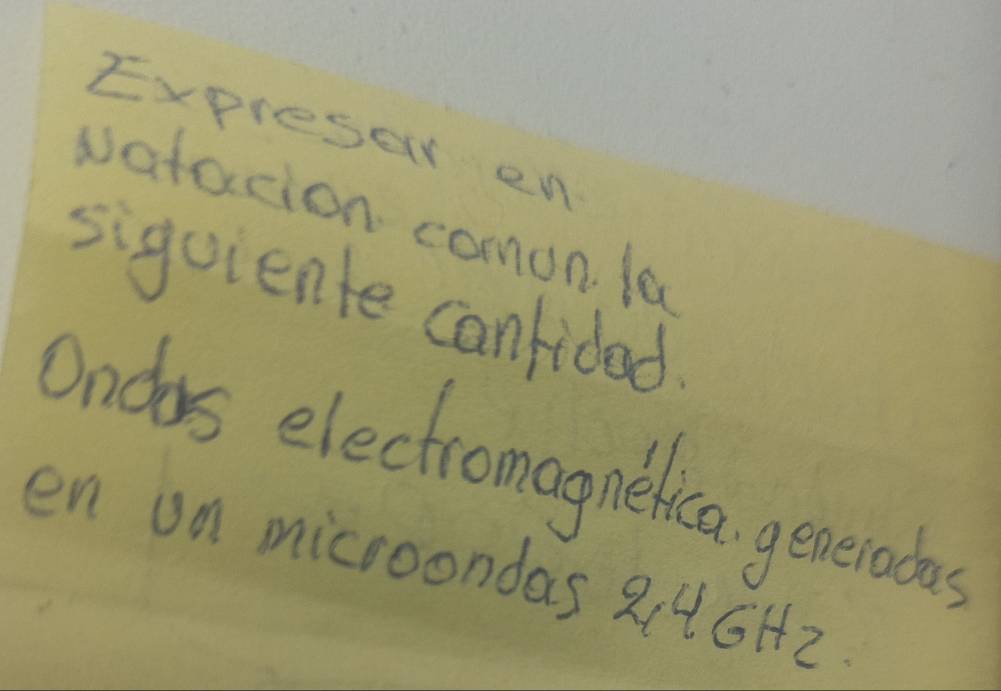 Expresar en
Natacion comun la
siguiente cantidad.
Ondas electromagnética generadas
en un microondas 2,4 GHz.